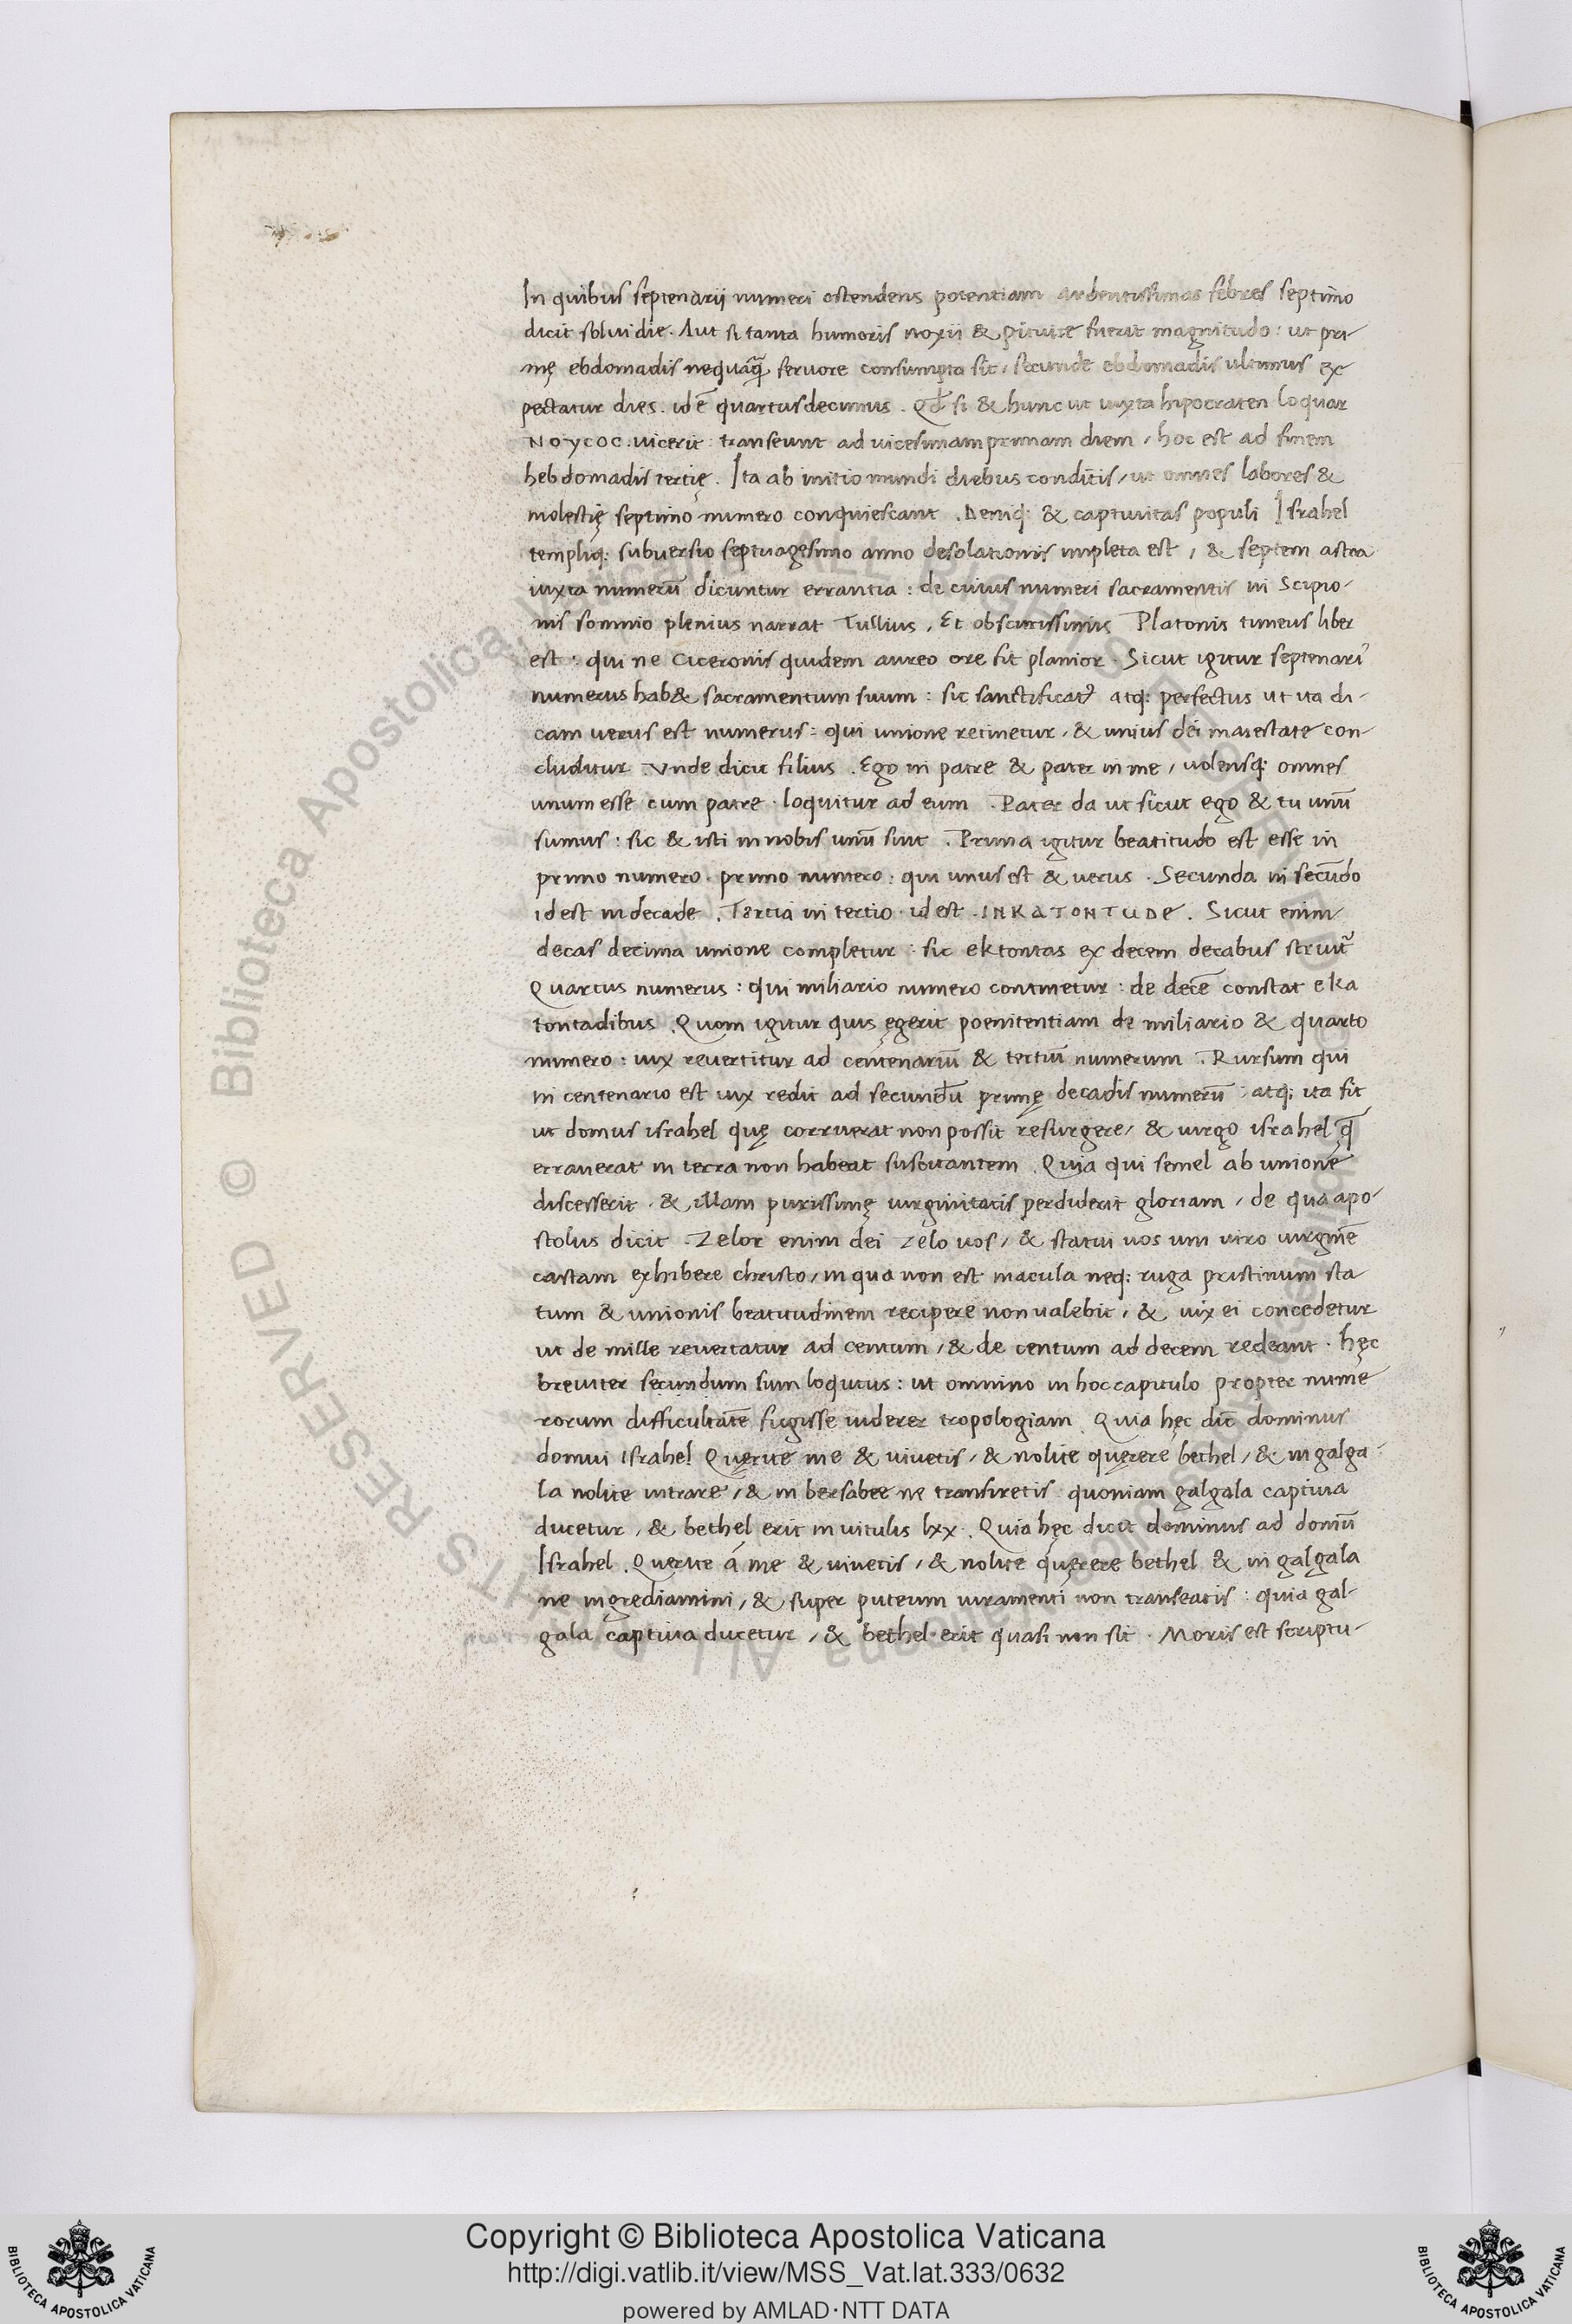 In quibus septenarij numeri ostendens potentiam ardentissimas febres septimo
dicit solui die. Aut si tanta humoris noxii & pituitæ fuerit magnitudo: ut pri-
mę ebdomadis nequaq̃ feruore consumpta sit, secunde ebdomadis ultimus ex
pectatur dies. id ē quartusdecimus. Qđ si & hunc ut iuxta hipocraten loquar
NOYCOC. uicerit: transeunt ad uicesimam primam diem, hoc est ad finem
hebdomadis tertię. Ita ab initio mundi diebus conditis, ut omnes labores &
molestię septimo numero conquiescant. Deniq; & captiuitas populi Israhel
templiq; subuersio septuagesimo anno desolationis impleta est, & septem astra
iuxta numerū dicuntur errantia: de cuius numeri sacramentis in Scipio-
nis somnio plenius narrat Tullius. Et obscurissimus Platonis timeus liber
est: qui ne Ciceronis quidem aureo ore fit planior. Sicut igitur septenari⁹
numerus hab& sacramentum suum: sic sanctificat᷑ atq; perfectus ut ita di-
cam uerus est numerus: qui unione retinetur, & unius dei maiestate con-
cluditur. Vnde dicit filius. Ego in patre & pater in me, uolensq; omnes
unum esse cum patre. loquitur ad eum. Pater da ut sicut ego & tu unū
sumus: sic & isti in nobis unū sint. Prima igitur beatitudo est esse in
primo numero. primo numero: qui unus est & uerus. Secunda in secūdo
id est in decade. Tertia in tertio. id est. INKATONTUDE. Sicut enim
decas decima unione completur: sic ektontas ex decem decabus struit᷑
Quartus numerus: qui miliario numero continetur: de decē constat eka
tontadibus. Quom igitur quis ęgerit poenitentiam de miliario & quarto
numero: uix reuertitur ad centenariū & tertiū numerum. Rursum qui
in centenario est uix redit ad secundū primę decadis numerū: atq; ita fit
ut domus israhel quę corruerat non possit resurgere, & uirgo israhel q̄
errauerat in terra non habeat suscitantem. Quia qui semel ab unione
discesserit. & illam purissimę uirginitatis perdiderit gloriam, de qua apo-
stolus dicit. Zelor enim dei zelo uos, & statui uos uni uiro uirginē
castam exhibere christo, in qua non est macula neq; ruga pristinum sta
tum & unionis beatitudinem recipere non ualebit, & uix ei concedetur
ut de mille reuertatur ad centum, & de centum ad decem redeant. hęc
breuiter secundum sum loqutus: ut omnino in hoc capitulo propter nume
rorum difficultatē fugisse uiderer tropologiam. Quia hęc dic̄ dominus
domui Israhel Quęrite me & uiuetis, & nolite quęrere bethel, & in galga-
la nolite intrare, & in bersabee ne transiretis: quoniam galgala captiua
ducetur, & bethel erit in uitulis lxx. Quia hęc dicit dominus ad domū
Israhel. Querite á me & uiuetis, & nolite quęrere bethel & in galgala
ne ingrediamini, & super puteum iuramenti non transeatis: quia gal-
gala captiua ducetur, & bethel. erit quasi non sit. Moris est scriptu-
Copyright © Biblioteca Apostolica Vaticana
http://digi.vatlib.it/view/MSS_Vat.lat.333/0632
powered by AMLAD·NTT DATA